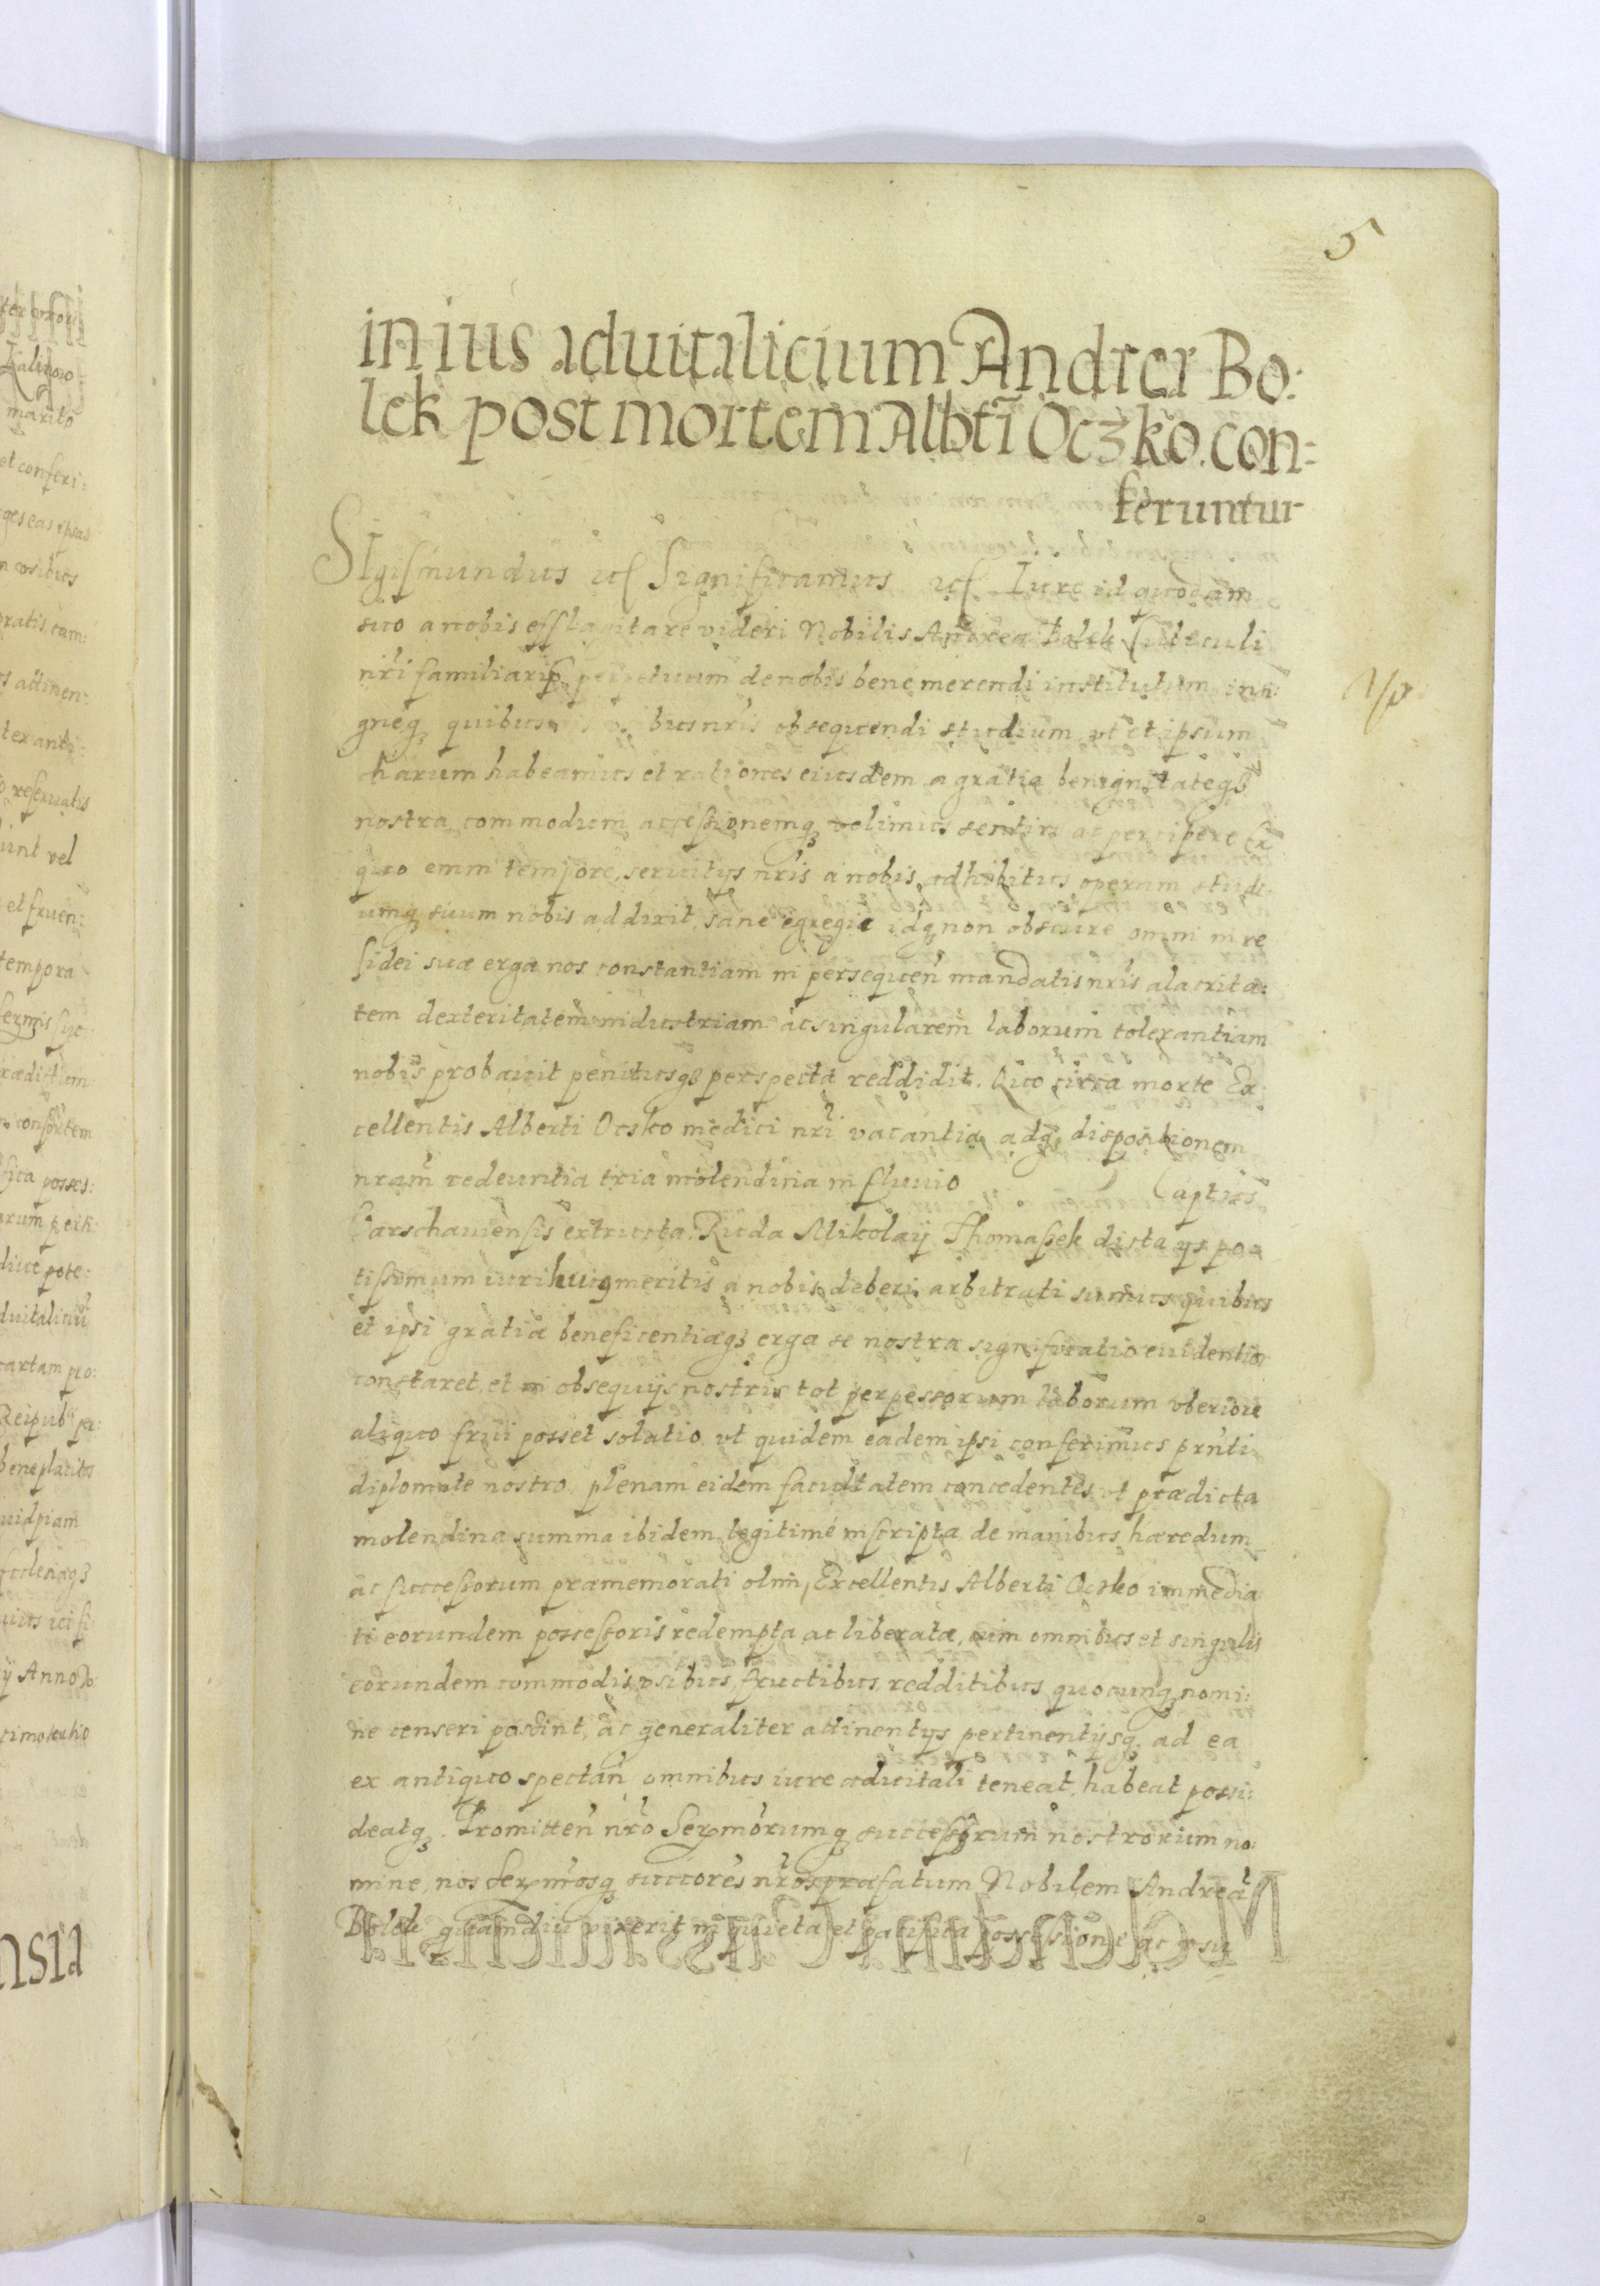 5
in ius aduitalicium Andreæ Bo:
lek post mortem Albti Oczko. con:
feruntur
SIgismundus etc Significamus etc Iure id quodam
suo a nobis efflagitare videri Nobilis Andrea Bolek Cubiculi
nri familiaris perpetuum de nobis bene merendi institutum
gneq quibus bus nris obsequendi studium, vt et ipsum
charum habeamus et rationes eiusdem a gratia benignitateq
nostra commodum accessionemq velimus sentire ac percipere Ex
quo enim tempore, seruitys nris a nobis adhibitus operam studi
umq suum nobis addixit, sane egregie idq non obscure omni in re
fidei suæ erga nos constantiam in persequen mandatis nris alacrita:
tem dexteritatem industriam ac singularem laborum tolerantiam
nobis probauit penitusq perspecta reddidit. Quo circa morte Ex
cellentis Alberti Oczko medici nri vacantia, adq dispositionem
nram redeuntia tria molendina in fluuio Captur
Parschauiensis extructa, Ruda Mikolaÿ Thomaßek dicta ys po
tissimum iuri huiq meritis a nobis deberi arbitrati sumus quibus
et ipsi gratiæ beneficentiæq erga se nostra significatio euidentior
constaret, et in obsequijs nostris tot perpessorum laborum vberiore
aliquo frui posset solatio. vt quidem eadem ipsi conferimus prnti
diplomate nostro, plenam eidem facultatem concedentes vt prædicta
molendina summa ibidem legitimé inscripta de manibus hæredum
ac successorum præmemorati olim Excellentis Alberti Oczko immedia
ti eorundem possessoris redempta ac liberata, cum omnibus et singulis
eorundem commodis, vsibus, fructibus redditibus quocunq nomi:
ne censeri possint, ac generaliter attinentys pertinentysq ad ea
ex antiquo spectan omnibus iure aduitali teneat, habeat possi:
deatq. Promitten nro Sermorumq successorum nostrorum no:
mine, nos Sermosq succores nros præfatum Nobilem Andreã
Bolek quamdiu vixerit in quieta et pacifica possessione ac vsu